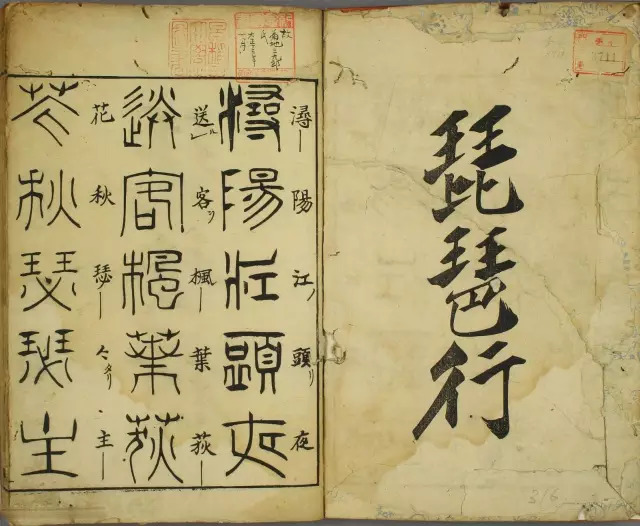 琵琶行
潯陽江頭夜
潯陽江頭夜
送客楓葉荻
送客楓葉荻
花秋瑟々主
花秋瑟瑟主